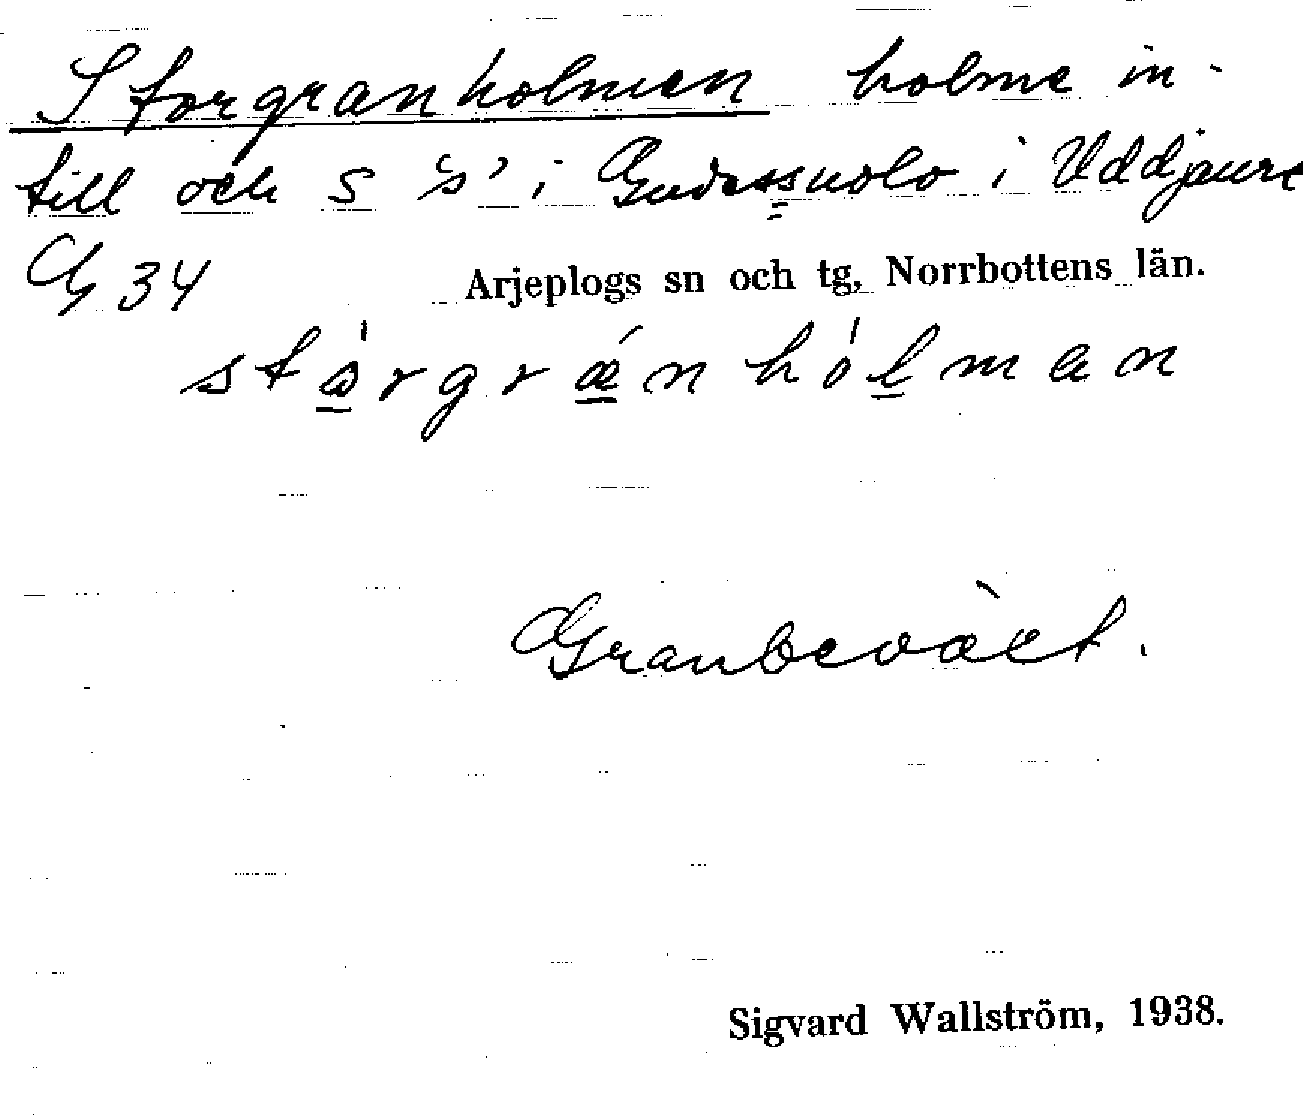 Storgranholmen holme in-
till och S i i Uddjaure
G 34 Arjeplogs sn och tg, Norrbottens län.
stårgránhólman
Granbeväxt.
Sigvard Wallström, 1938.